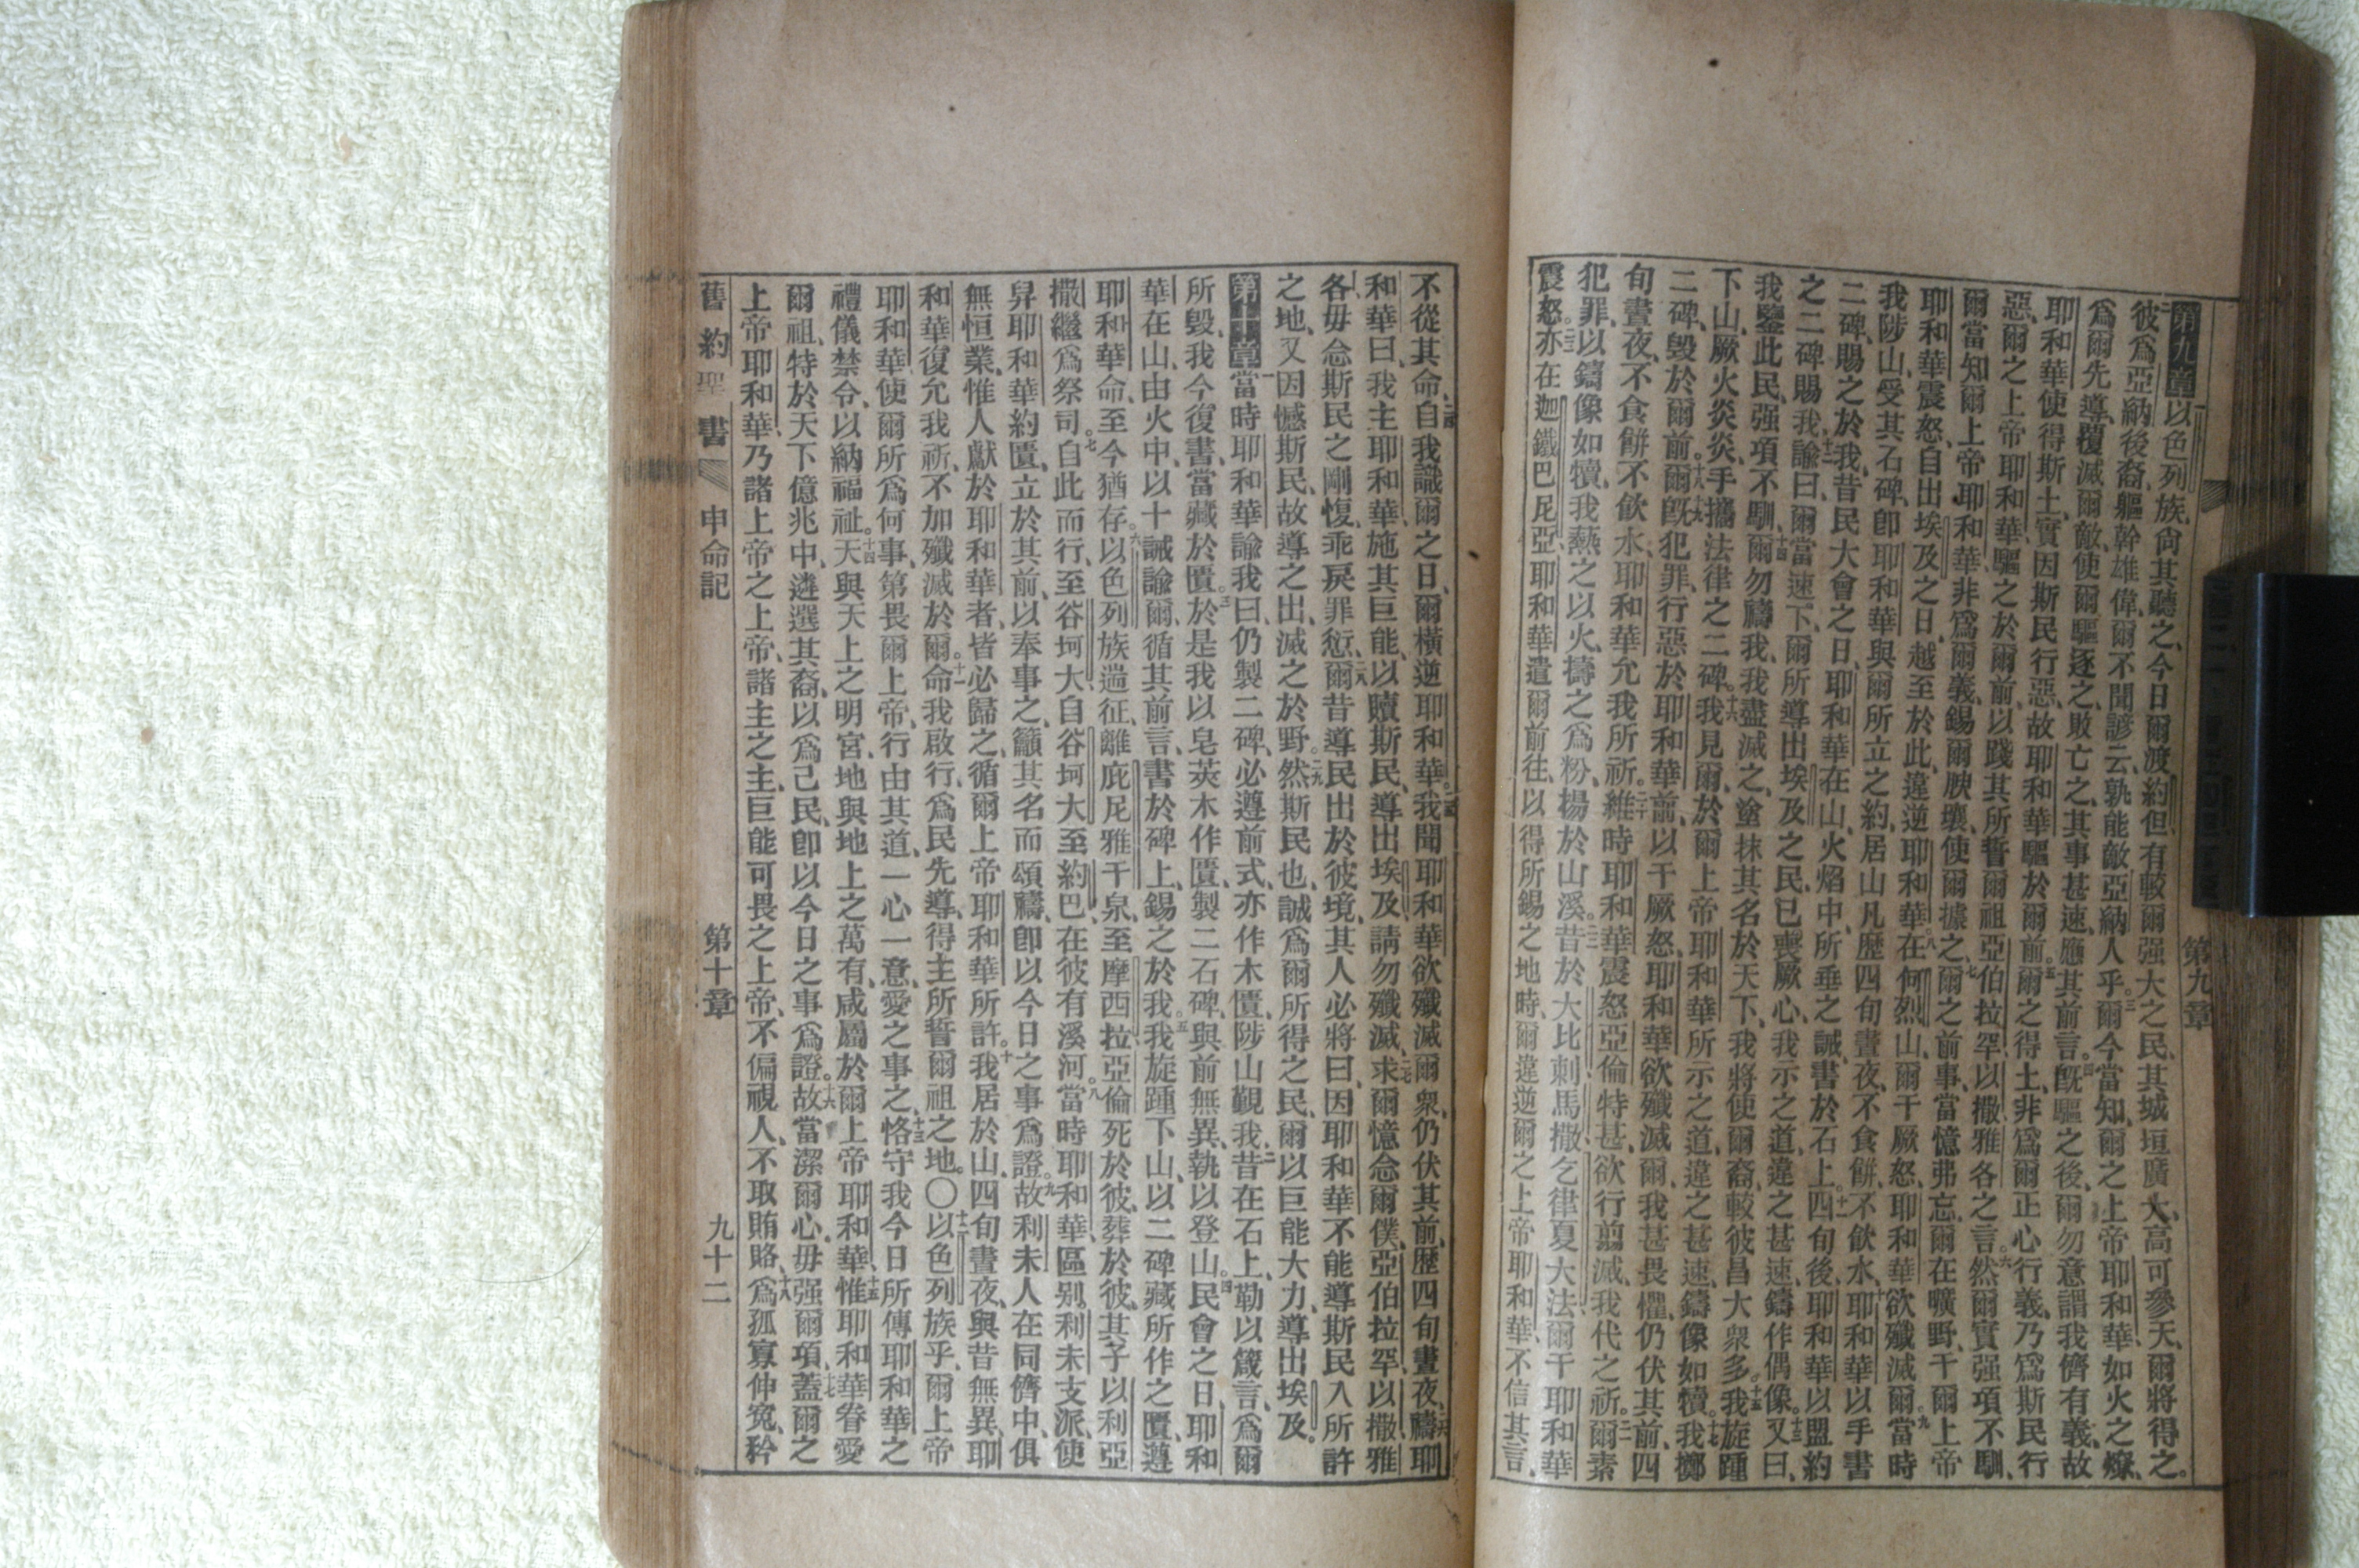 第九章
第九章以色列族、尙其聽之、今日爾渡約但、有較爾强大之民、其城垣廣大、高可參天、爾將得之。
二彼爲亞納後裔、軀幹雄偉、爾不聞諺云、孰能敵亞納人乎。三爾今當知、爾之上帝耶和華、如火之燎、
爲爾先導、覆滅爾敵、使爾驅逐之、敗亡之、其事甚速、應其前言。四旣驅之後、爾勿意謂我儕有義、故
耶和華使得斯土、實因斯民行惡、故耶和華驅於爾前。五爾之得土、非爲爾正心行義、乃爲斯民行
惡、爾之上帝耶和華、驅之於爾前、以踐其所誓爾祖亞伯拉罕、以撒、雅各之言。六然爾實强項不馴、
爾當知爾上帝耶和華、非爲爾義、錫爾腴壤、使爾據之。七爾之前事、當憶弗忘、爾在曠野、干爾上帝
耶和華震怒、自出埃及之日、越至於此、違逆耶和華。八在何烈山、爾干厥怒、耶和華欲殲滅爾。九當時
我陟山、受其石碑、卽耶和華與爾所立之約、居山凡歷四旬晝夜、不食餅、不飲水、十耶和華以手書
二碑、賜之於我、昔民大會之日、耶和華在山、火焰中、所垂之誡、書於石上。十一四旬後、耶和華以盟約
之二碑賜我、十二諭曰、爾當速下、爾所導出埃及之民、已喪厥心、我示之道、違之甚速、鑄作偶像。十三又曰、
我鑒此民、强項不馴、十四爾勿禱我、我盡滅之、塗抹其名於天下、我將使爾裔、較彼昌大衆多。十五我旋踵
下山、厥火炎炎、手攜法律之二碑。十六我見爾於爾上帝耶和華所示之道、違之甚速、鑄像如犢。十七我擲
二碑、毀於爾前。十八爾旣犯罪、行惡於耶和華前、以干厥怒、耶和華欲殲滅爾、我甚畏懼、仍伏其前、四
旬晝夜、不食餅、不飲水、耶和華允我所祈。二十維時耶和華震怒亞倫特甚、欲行翦滅、我代之祈。二一爾素
犯罪、以鑄像如犢、我爇之以火、擣之爲粉、揚於山溪。二二昔於大比剌、馬撒、乞律夏大法、爾干耶和華
震怒。二三亦在迦鐵巴尼亞、耶和華遣爾前往、以得所錫之地時、爾違逆爾之上帝耶和華、不信其言、
不從其命、二四自我識爾之日、爾橫逆耶和華。二五我聞耶和華欲殲滅爾衆、仍伏其前、歷四旬晝夜、二六禱耶
和華曰、我主耶和華、施其巨能、以贖斯民、導出埃及、請勿殲滅、二七求爾憶念爾僕亞伯拉罕、以撒、雅
各、毋念斯民之剛愎乖戾罪愆、二八爾昔導民出於彼境、其人必將曰、因耶和華不能導斯民入所許
之地、又因憾斯民、故導之出、滅之於野。二九然斯民也、誠爲爾所得之民、爾以巨能大力、導出埃及。
第十章一當時耶和華諭我曰、仍製二碑、必遵前式、亦作木匱、陟山覲我、二昔在石上、勒以箴言、爲爾
所毀、我今復書、當藏於匱。三於是我以皂莢木作匱、製二石碑、與前無異、執以登山。四民會之日、耶和
華在山、由火中以十誡諭爾、循其前言、書於碑上、錫之於我。五我旋踵下山、以二碑藏所作之匱、遵
耶和華命、至今猶存。六以色列族遄征、離庇尼雅干泉、至摩西拉、亞倫死於彼、葬於彼、其子以利亞
撒、繼爲祭司。七自此而行、至谷坷大、自谷坷大至約巴、在彼有溪河。八當時耶和華區别利未支派、使
舁耶和華約匱、立於其前、以奉事之、籲其名而頌禱、卽以今日之事爲證。九故利未人在同儕中、俱
無恒業、惟人獻於耶和華者、皆必歸之、循爾上帝耶和華所許。十我居於山、四旬晝夜、與昔無異、耶
和華復允我祈、不加殲滅於爾。十一命我啟行、爲民先導、得主所誓爾祖之地。〇十二以色列族乎、爾上帝
耶和華、使爾所爲何事、第畏爾上帝、行由其道、一心一意、愛之事之、十三恪守我今日所傳耶和華之
禮儀禁令、以納福祉。十四天與天上之明宮、地與地上之萬有、咸屬於爾上帝耶和華、十五惟耶和華眷愛
爾祖、特於天下億兆中、遴選其裔、以爲己民、卽以今日之事爲證。十六故當潔爾心、毋强爾項、十七蓋爾之
上帝耶和華、乃諸上帝之上帝、諸主之主、巨能可畏之上帝、不偏視人、不取賄賂、十八爲孤寡伸冤、矜
舊約聖書 申命記 第十章 九十二